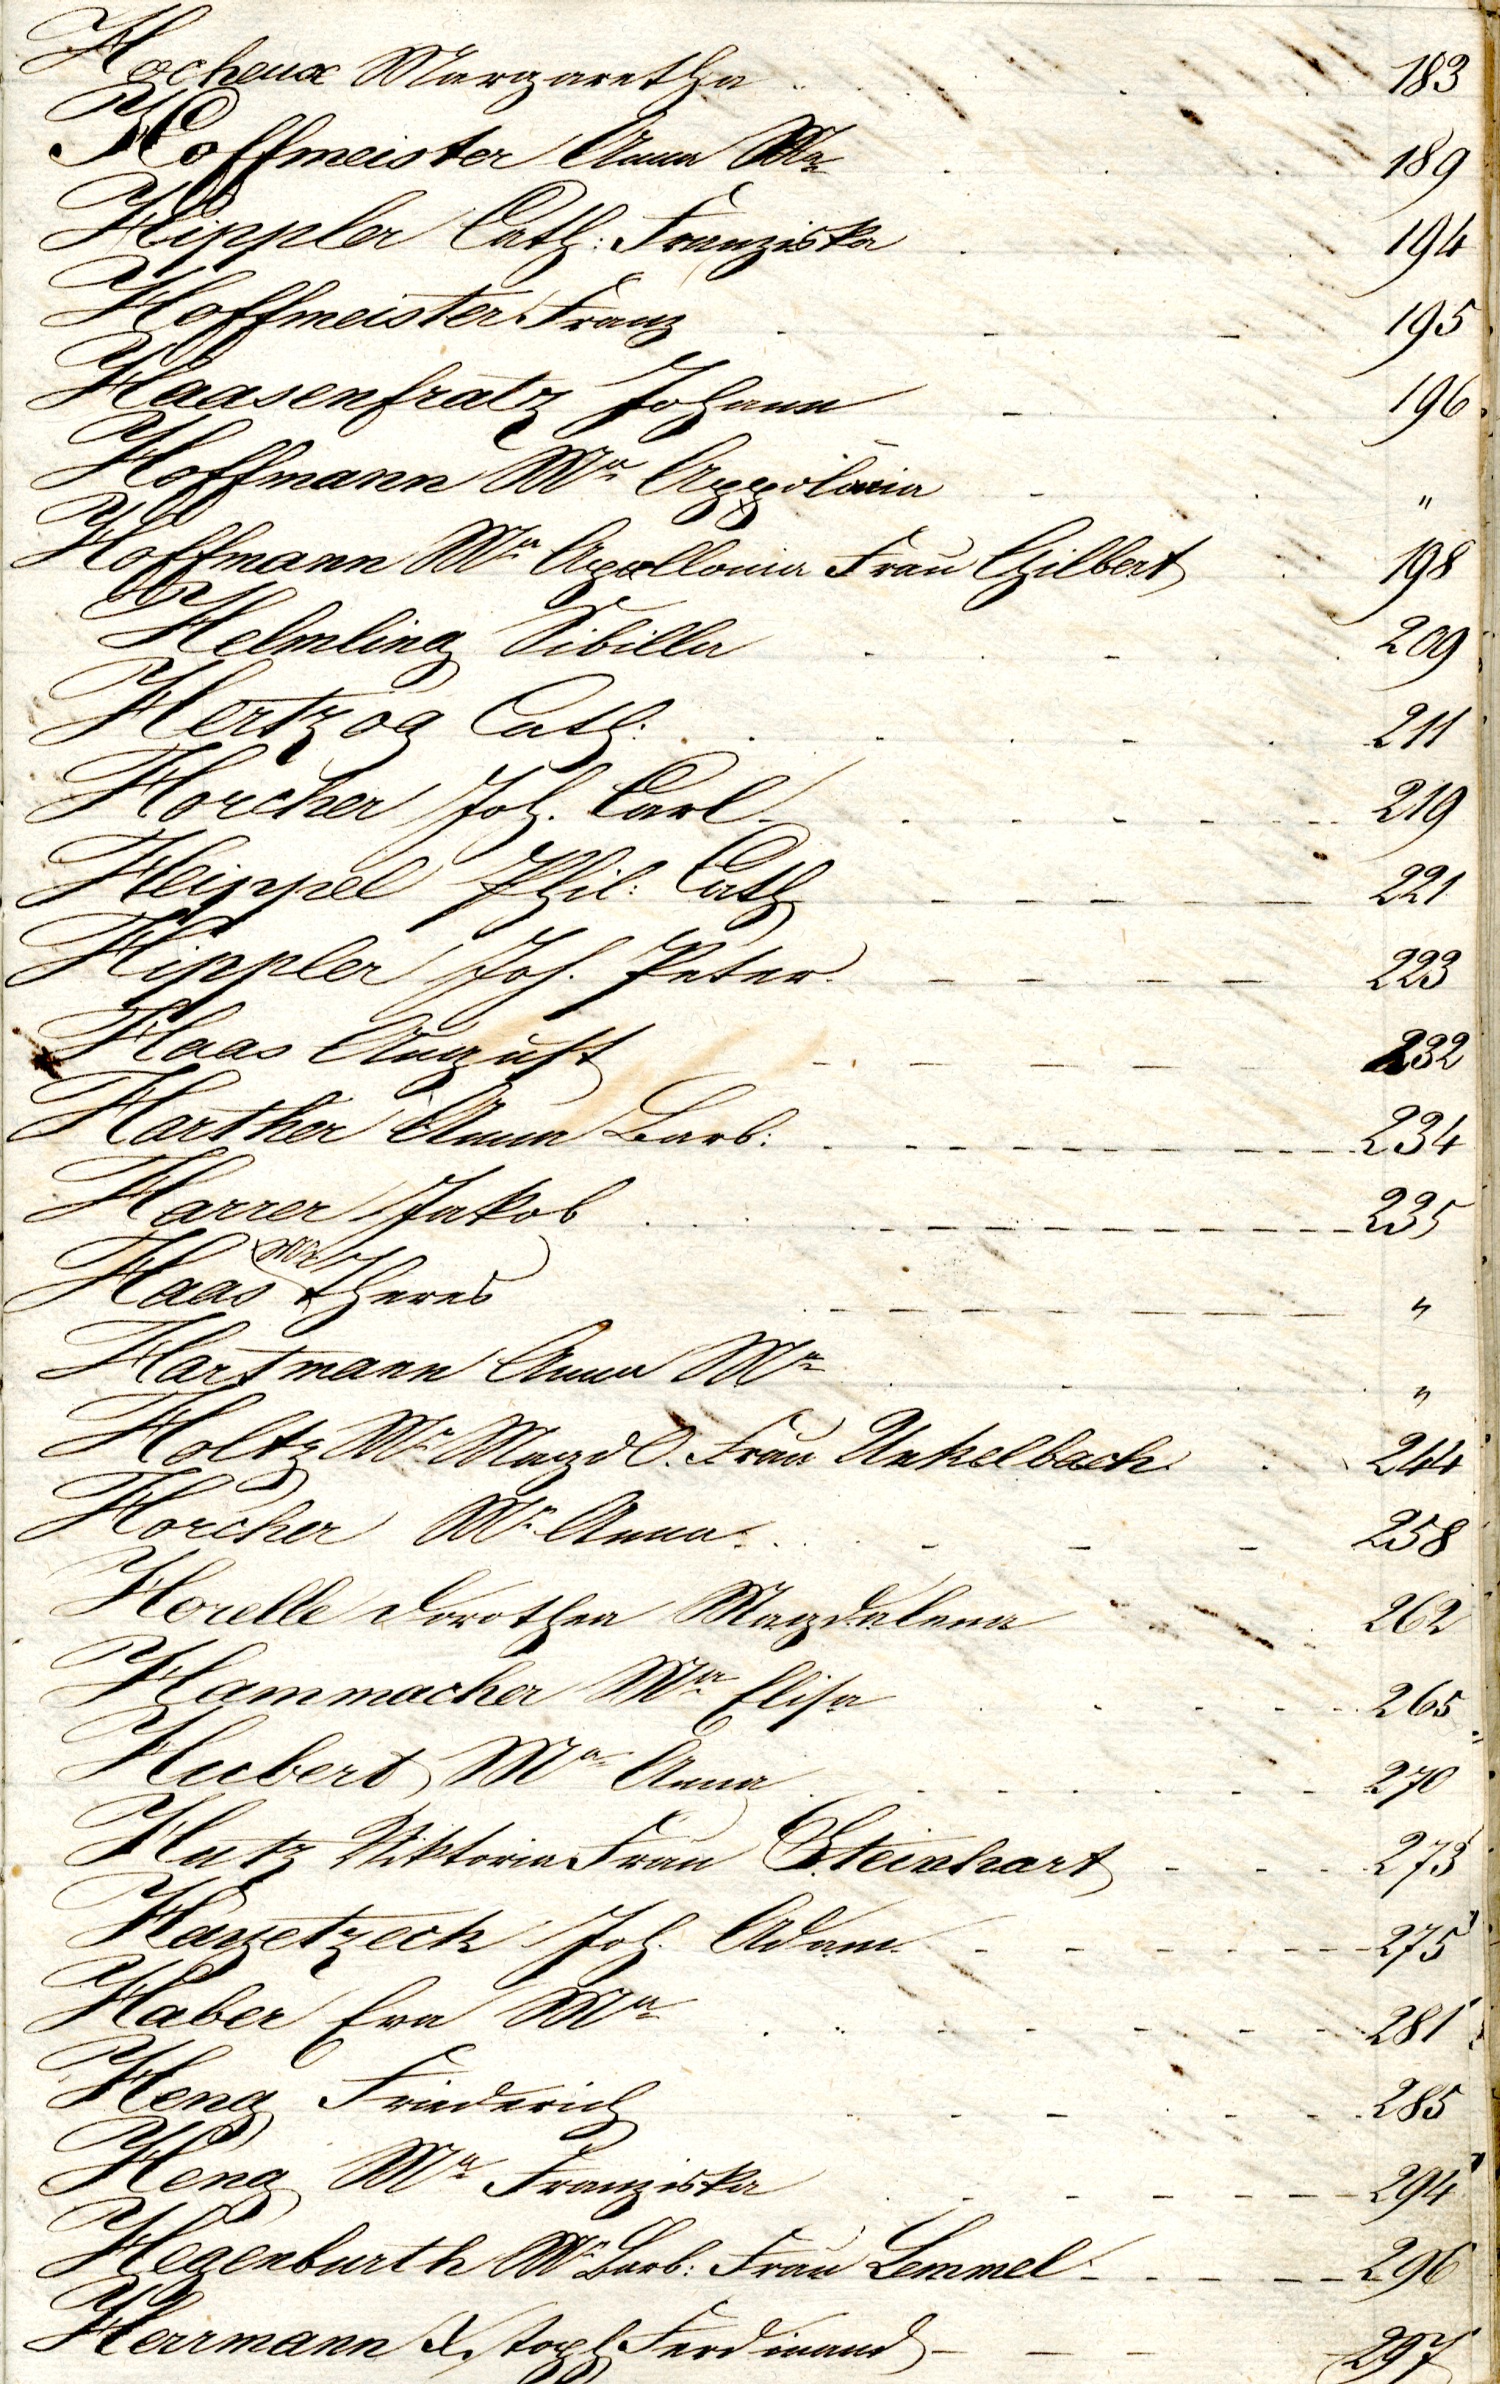 Hocheux Margaretha 183
Hoffmeister Anna Ma 189
Hippler Cath: Franziska 194
Hoffmeister Franz 195
Haasenfratz Johann 196
Hoffmann Ma Appolonia "
Hoffmann Ma Apollonia Frau Gilbert 198
Helmling Sibilla 209
Hertzog Cath: 211
Horcher Joh. Carl 219
Heippel Phil: Cath 221
Hippler Jos. Peter 223
Haas August 232
Harther Anna Barb: 234
Harrer Jakob 235
Haas Ma Theres "
Hartmann Anna Ma "
Holtz Ma Magdl. Frau Unkelbach 244
Horcher Ma Anna 258
Horelle Dorothea Magdalena 262
Hammacher Ma Elisa 265
Hubert Ma Anna 270
Hutz Viktoria Frau Steinhart 273
Hayetzeck Joh. Adam 275
Haber Eva Ma 281
Heng Friederich 285
Heng Ma Franziska 294
Hegenburth Ma Barb: Frau Lemmel 296
Herrmann Ferdinand 297